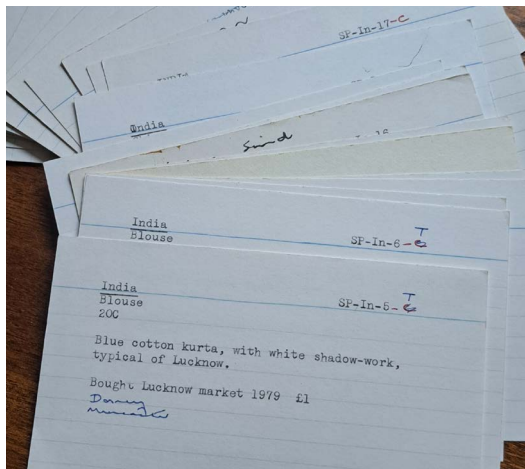 SP-In-17-C
India
Sind
India
Blouse
T
SP-In-6-
India
Blouse
20C
T
SP-In-5-
Blue cotton kurta, with white shadow-work,
typical of Lucknow.
Bought Lucknow market 1979 £1